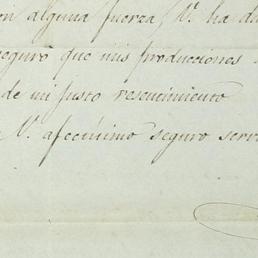 con alguna fuerza, V. ha d
seguro que mis producciones
de mi justo resentimiento
V. afectísimo seguro serv